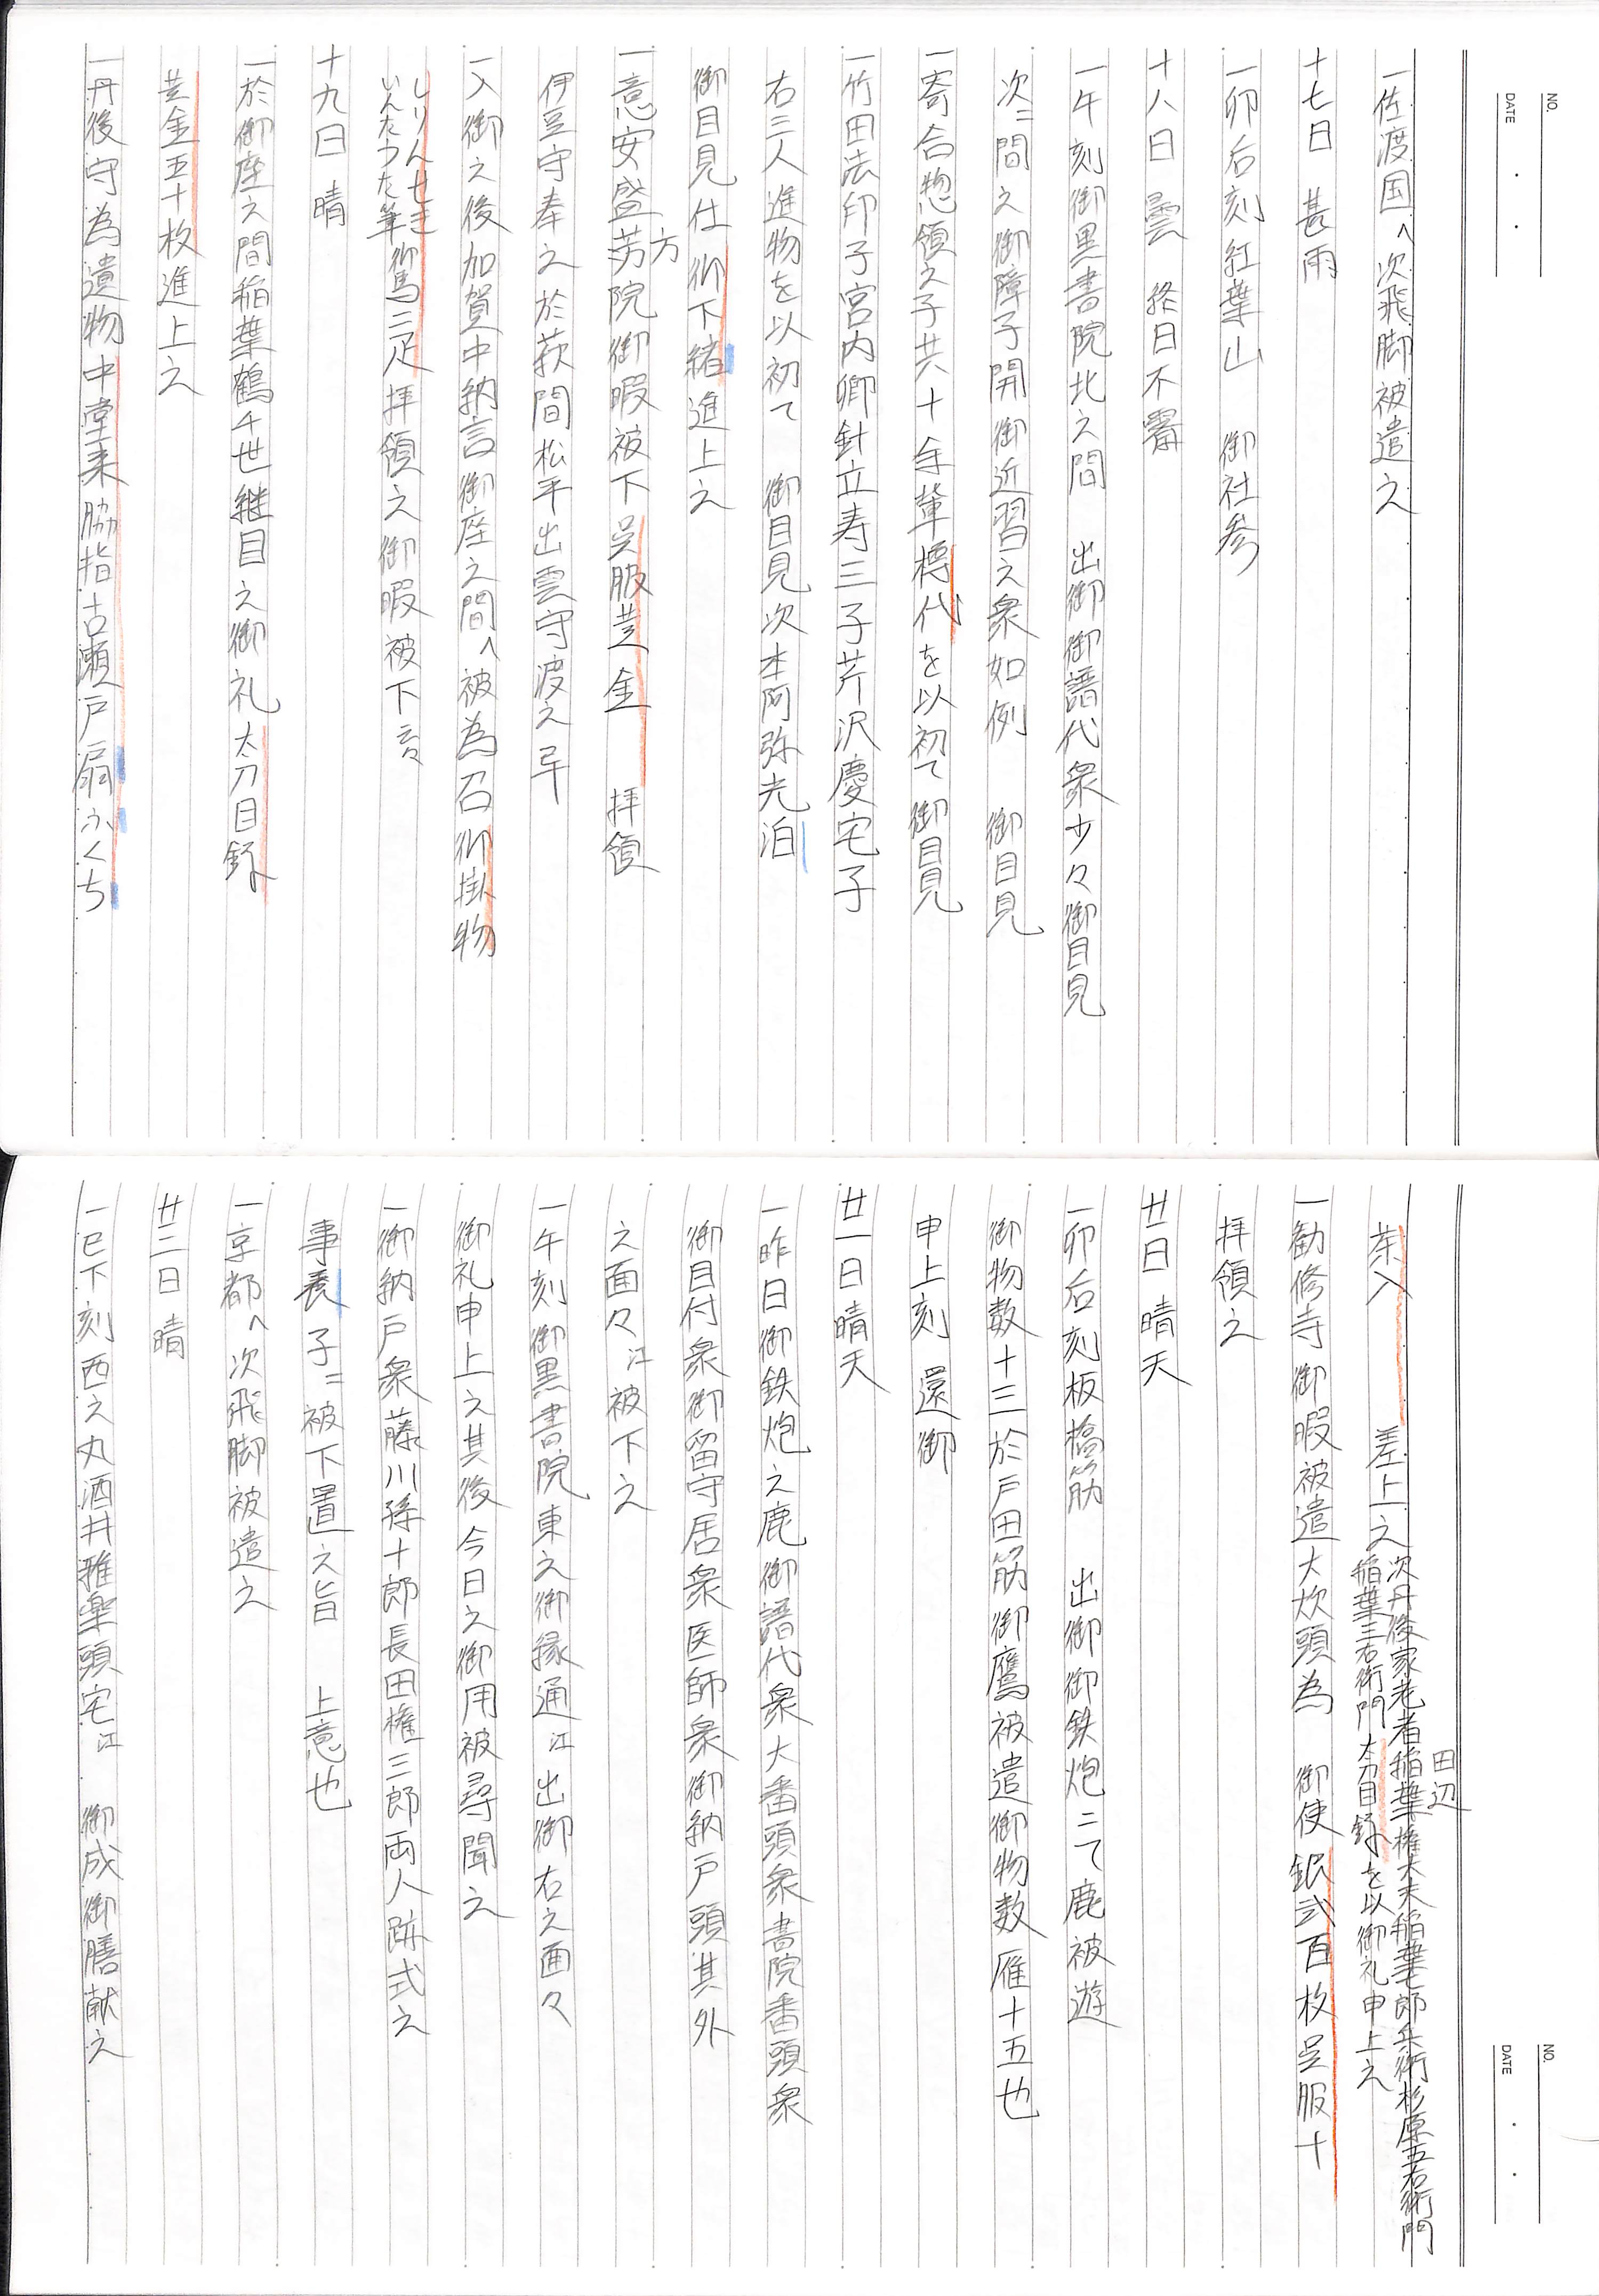 NO.
DATE ・ ・
一佐渡国へ次飛脚被遣之
十七日 甚雨
一卯后刻紅葉山 御社参
十八日 曇 終日不霽
一午刻御黒書院北之間 出御御譜代衆少々御目見
次ニ間之御障子開御近習之衆如例 御目見
一寄合惣領之子共十余輩樽代を以初て御目見
一竹田法印子宮内卿針立寿三子芹沢慶宅子
右三人進物を以初て 御目見次本阿弥光泊
御目見仕御下緒進上之
一意安盛芳院御暇被下呉服黄金 拝領
方
伊豆守奉之於萩間松平出雲守渡之
一入御之後加賀中納言御座之間へ被為召御掛物
しりんせき
いんたうた筆
御馬二疋拝領之御暇被下
十九日 晴
一於御座之間稲葉鶴千世継目之御礼太刀目録
黄金五十枚進上之
一丹後守為遺物中堂来脇指古瀬戸扇ふくち
NO.
DATE ・ ・
茶入 差上之
次丹後家老者稲葉権太夫稲葉七郎兵衛杉原五右衛門
田辺
稲葉三右衛門太刀目録を以御礼申上之
一勧修寺御暇被遣大炊頭為 御使銀弐百枚呉服十
拝領之
廿日 晴天
一卯后刻板橋筋 出御御鉄炮ニて鹿被遊
御物数十三於戸田筋御鷹被遣御物数雁十五也
申上刻 還御
廿一日晴天
一昨日御鉄炮之鹿御譜代衆大番頭衆書院番頭衆
御目付衆御留守居衆医師衆御納戸頭其外
之面々江被下之
一午刻御黒書院東之御縁通江出御右之面々
御礼申上之其後今日之御用被尋聞之
一御納戸衆藤川孫十郎長田権三郎両人跡式之
事養子ニ被下置之旨 上意也
一京都へ次飛脚被遣之
廿二日 晴
一巳下刻西之丸酒井雅楽頭宅江 御成御膳献之